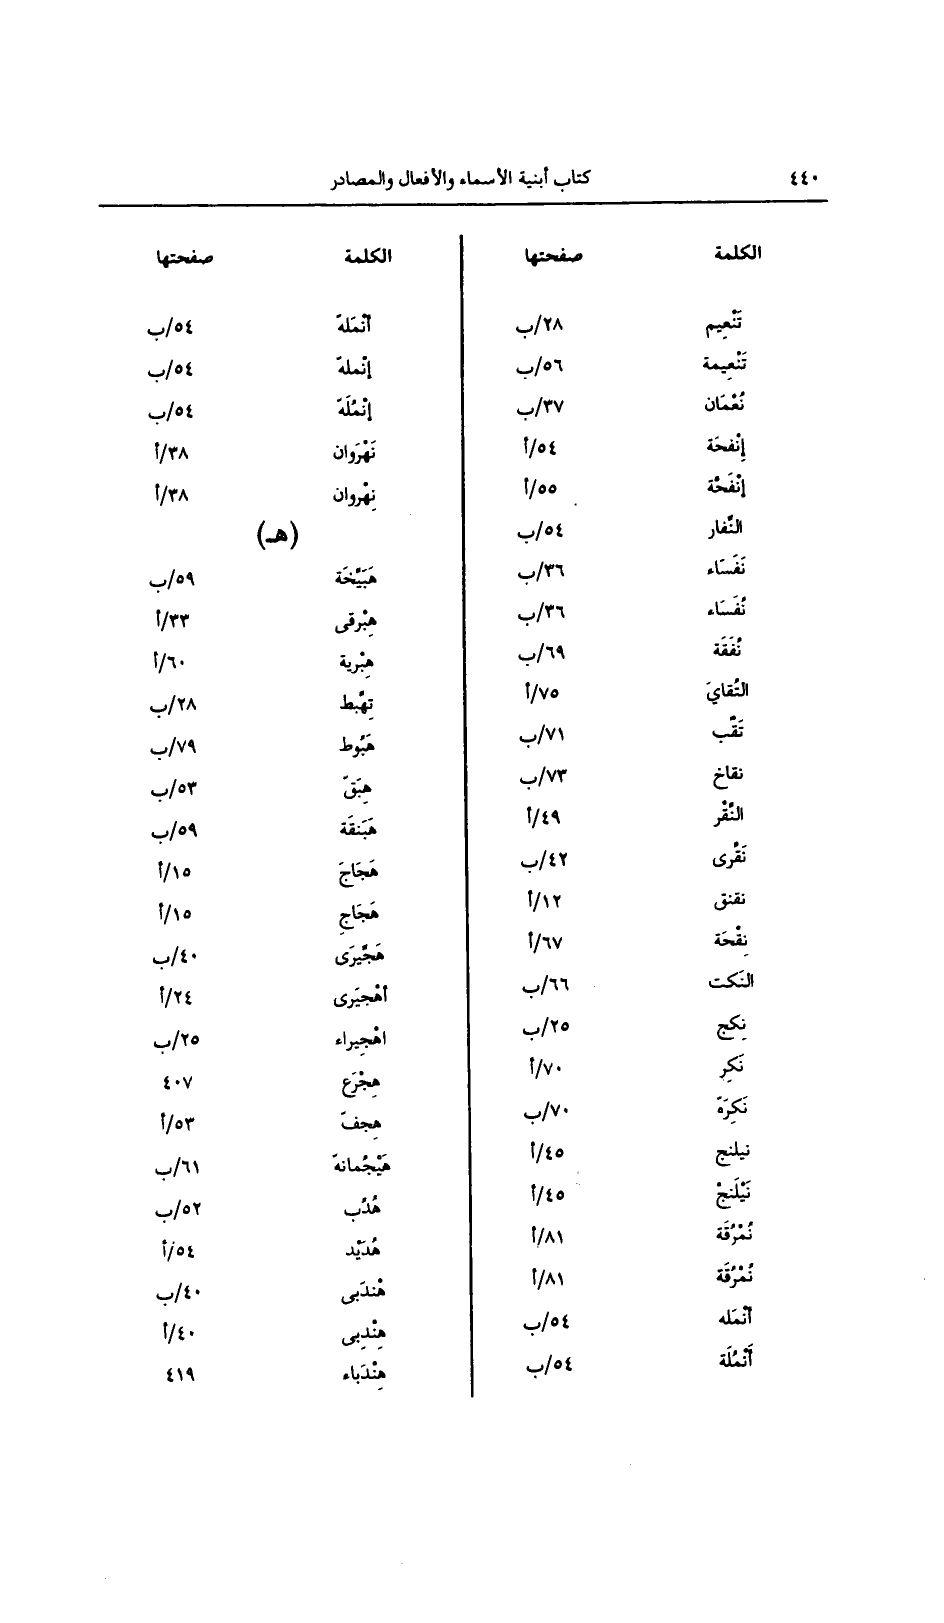 ٤٤٠
كتاب أبنية الأسماء والأفعال والمصادر
الكلمة صفحتها
تَنْعِيم ٢٨/ب
تَنْعِيمة ٥٦/ب
نُعْمَان ٣٧/ب
إِنْفحَة ٥٤/أ
إِنْفَحْة ٥٥/أ
النِّفار ٥٤/ب
نَفَسَاء ٣٦/ب
نُفَسَاء ٣٦/ب
نُفَقَة ٦٩/ب
النُقايَ ٧٥/أ
نَقّب ٧١/ب
نقاخ ٧٣/ب
النِّقْر ٤٩/أ
نَقْرى ٤٢/ب
نقنق ١٢/أ
نِقْحَة ٦٧/أ
النَكت ٦٦/ب
نِكج ٢٥/ب
نَكِر ٧٠/أ
نَكِرَة ٧٠/ب
نيلنج ٤٥/أ
نَيْلَنجْ ٤٥/أ
نُمْرُقَة ٨١/أ
نُمْرُقَة ٨١/أ
أَنْمَله ٥٤/ب
أَنْمُلَة ٥٤/ب
الكلمة صفحتها
أُنْمَلة ٥٤/ب
إِنْملة ٥٤/ب
إِنْمُلَة ٥٤/ب
نَهْرَوان ٣٨/أ
نِهْروان ٣٨/أ
(هـ)
هَبَيِّخَة ٥٩/ب
هِبْرقى ٣٣/أ
هِبْرية ٦٠/أ
تِهبَّط ٢٨/ب
هَبُوط ٧٩/ب
هِبَقّ ٥٣/ب
هَبَنقَة ٥٩/ب
هَجَاجَ ١٥/أ
هَجَاجِ ١٥/أ
هَجِّيرَى ٤٠/ب
أهْجيَرى ٢٤/أ
اهْجِيراء ٢٥/ب
هِجْرَع ٤٠٧
هِجفّ ٥٣/أ
هَيْجُمانة ٦١/ب
هُدُب ٥٢/ب
هُدَيْد ٥٤/أ
هْندَبى ٤٠/ب
هِنْدِبى ٤٠/أ
هِنْدَباء ٤١٩